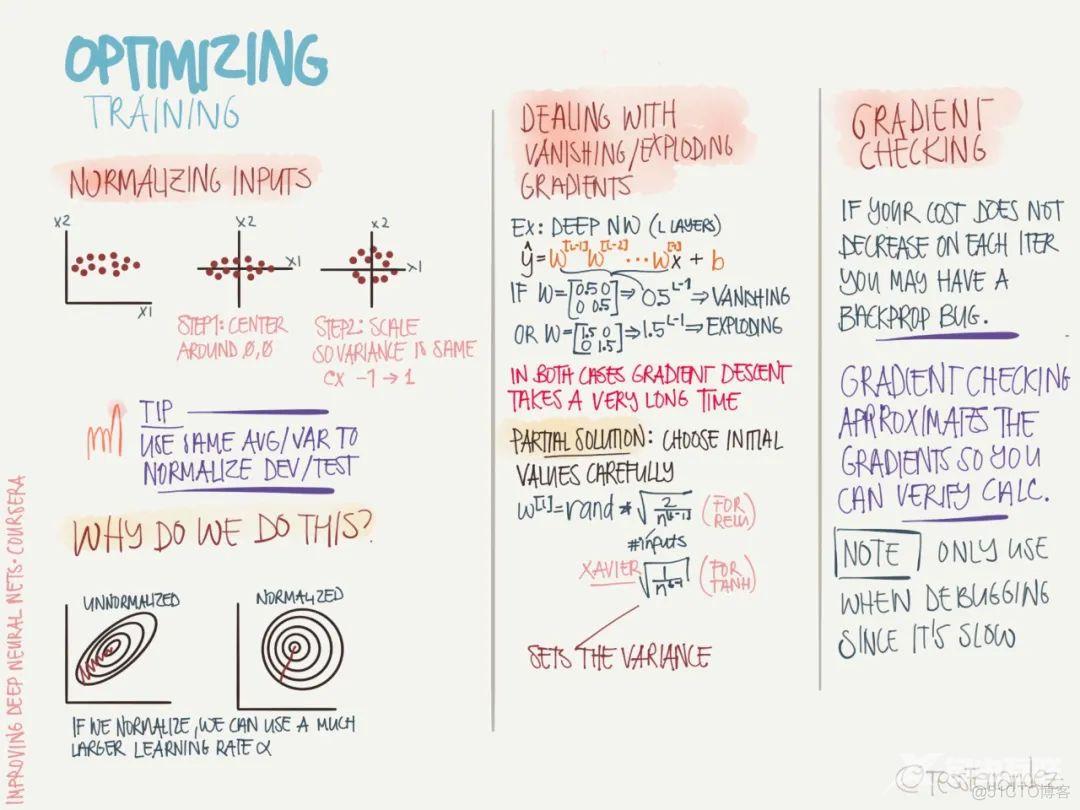 OPTIMIZING
TRAINING
NORMALIZING INPUTS
X2
X1
X2
X1
X2
X1
STEP1: CENTER
AROUND 0,0
STEP2: SCALE
SO VARIANCE IS SAME
EX -1 → 1
TIP
USE SAME AVG/VAR TO
NORMALIZE DEV/TEST
WHY DO WE DO THIS?
UNNORMALIZED
NORMALIZED
IF WE NORMALIZE, WE CAN USE A MUCH
LARGER LEARNING RATE α
IMPROVING DEEP NEURAL NETS · COURSERA
DEALING WITH
VANISHING/EXPLODING
GRADIENTS
EX: DEEP NW (L LAYERS)
ŷ = W^[L-1] W^[L-2] ... W^[1] X + b
IF W = [0.5 0; 0 0.5] ⇒ 0.5^L-1 ⇒ VANISHING
OR W = [1.5 0; 0 1.5] ⇒ 1.5^L-1 ⇒ EXPLODING
IN BOTH CASES GRADIENT DESCENT
TAKES A VERY LONG TIME
PARTIAL SOLUTION: CHOOSE INITIAL
VALUES CAREFULLY
W^[l] = rand * √(2/n^[l-1]) (FOR RELU)
#inputs
XAVIER √(1/n^[l-1]) (FOR TANH)
SETS THE VARIANCE
GRADIENT
CHECKING
IF YOUR COST DOES NOT
DECREASE ON EACH ITER
YOU MAY HAVE A
BACKPROP BUG.
GRADIENT CHECKING
APPROXIMATES THE
GRADIENTS SO YOU
CAN VERIFY CALC.
NOTE ONLY USE
WHEN DEBUGGING
SINCE IT'S SLOW
@TessFerrandez
@51CTO博客